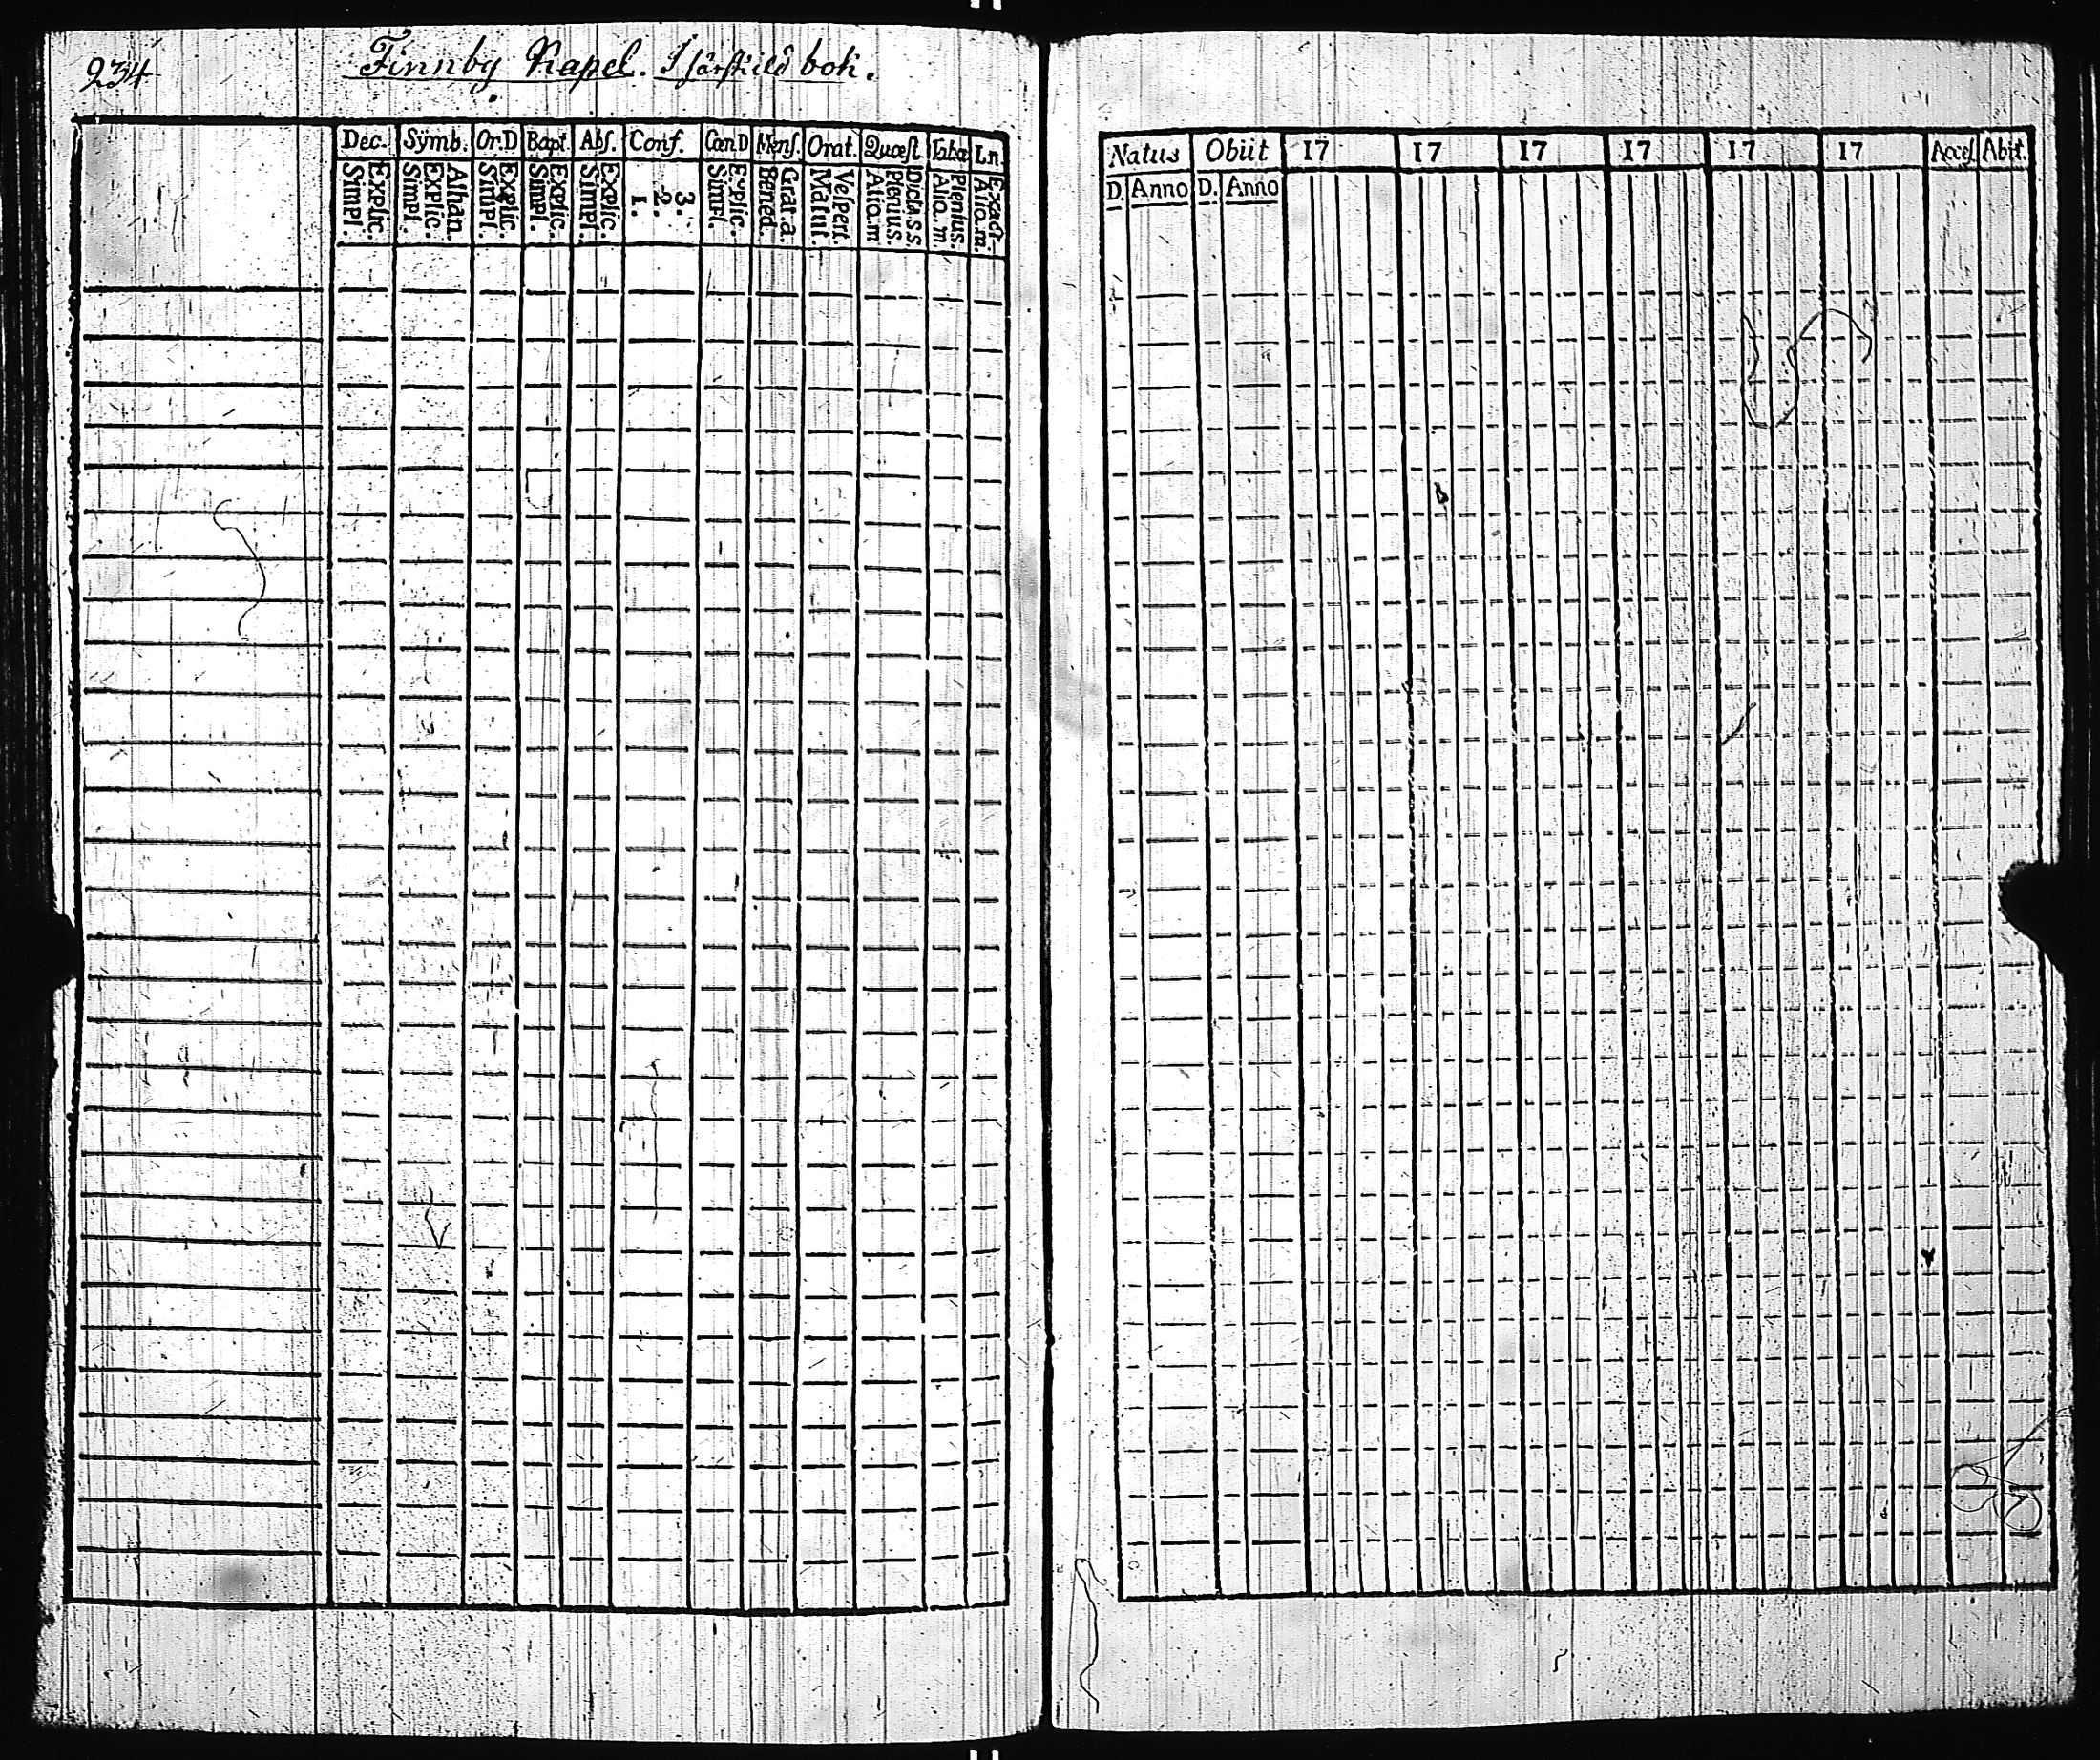 234
Finnby Kapel. I särskild bok.
Dec. Symb. Or.D Bapt. Abſ. Conf. CœnD Menſ. Orat. Quœſt Tabœ Ln.
Simpl. Explic. Simpl. Explic. Athan. Simpl. Explic. Simpl. Explic. Simpl. Explic. 1. 2. 3. Simpl. Explic. Bened. Grat.a. Matut. Veſpert. Alio.m Plenius. Dicta.S.S. Alio.m. Plenius. Alio.m. Exact.
Natus Obiit 17 17 17 17 17 17 Acceſ Abit.
D. Anno D. Anno